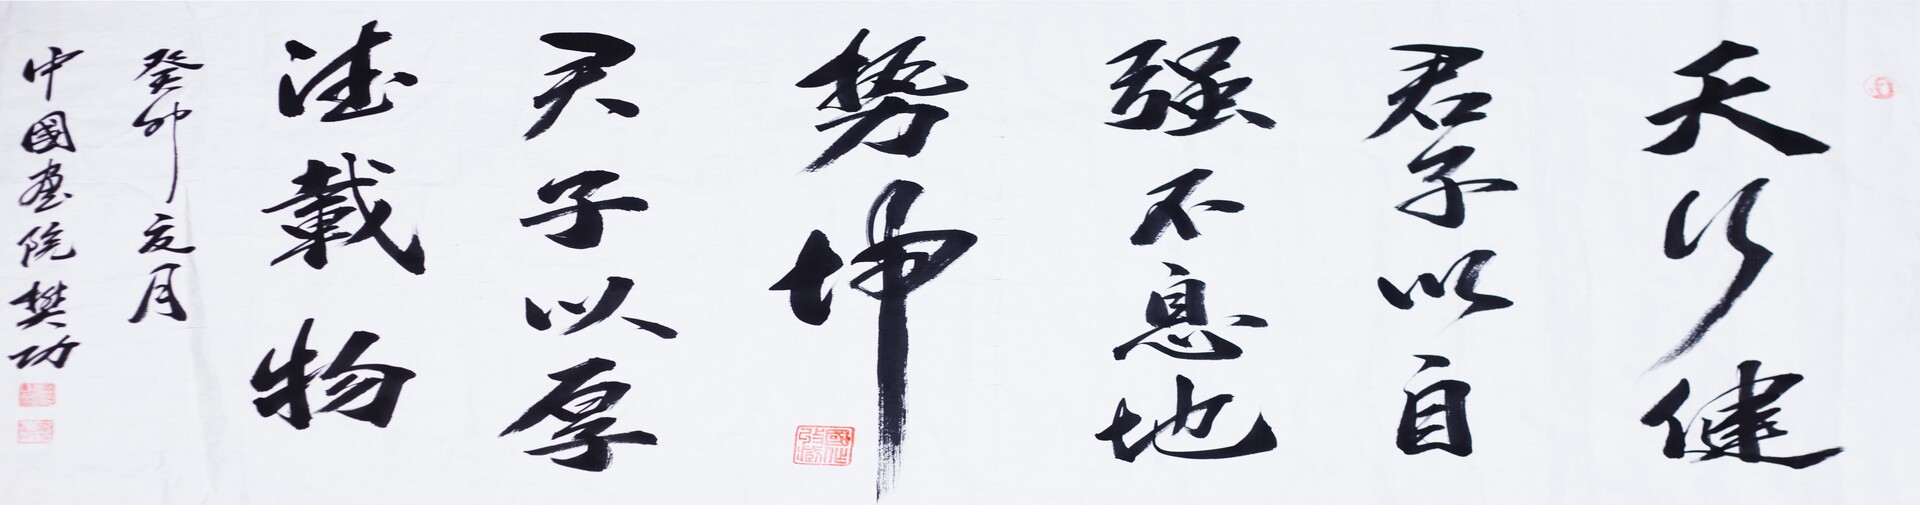 天行健
君子以自
强不息地
势坤
君子以厚
德載物
癸卯元月
中國畫院樊功